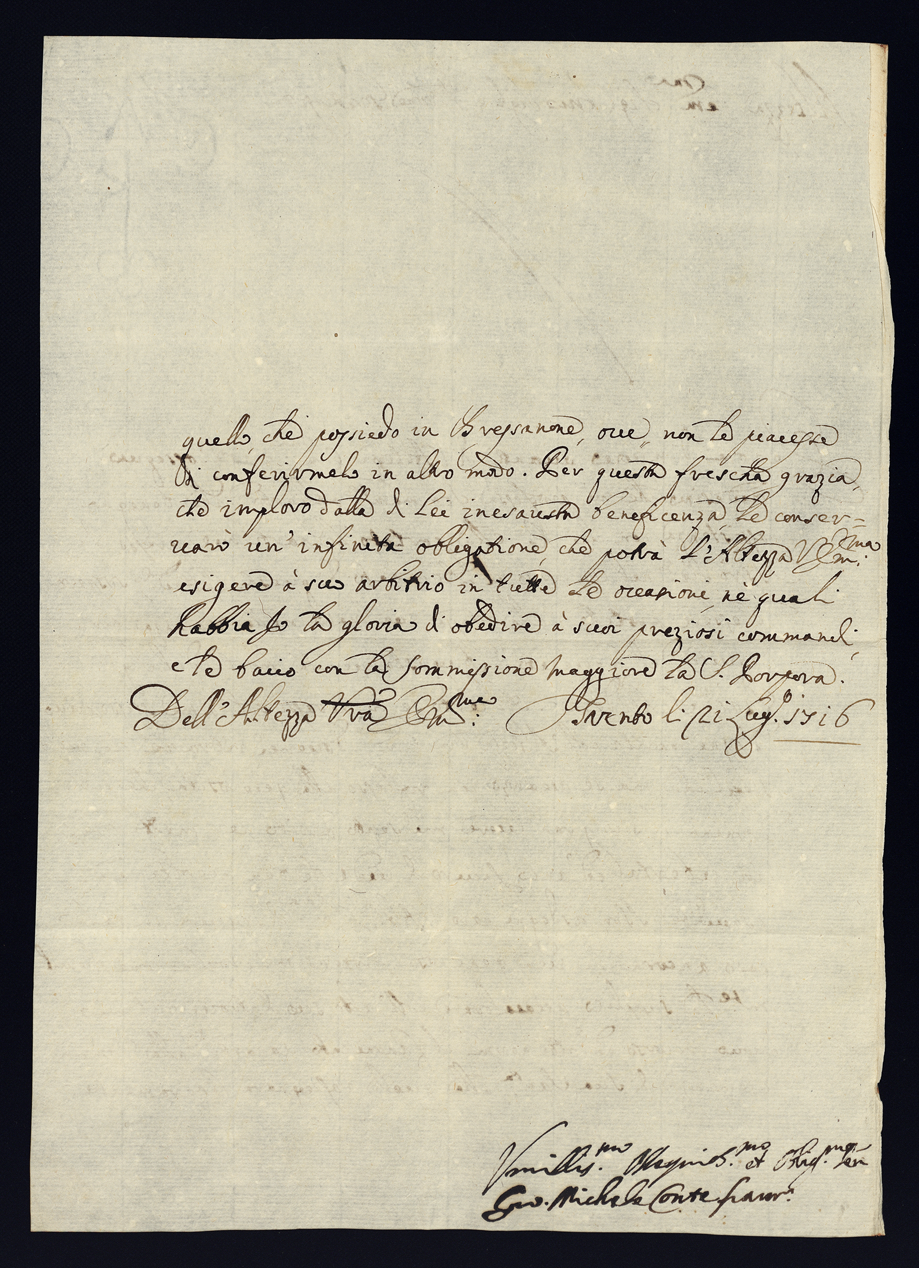 quello, che possiedo in Bressanone, oue, non le piacesse
di conferirmelo in altro modo. Per questa frescha grazia,
che imploro dalla di Lei inesausta beneficenza, Le conser=
uarò un' infinita obligatione, che potrà l'Altezza V. Em.ma
esigere à suo arbitrio in tutte le occasioni, nè quali
habbia Io la gloria di obedire à suoi preziosi commandi;
e le bacio con la sommissione maggiore la S. Porpora.
Dell' Altezza Vra Em.ma: Trento li 21 Lug.o 1716
Vmillis.mo Ossequios.mo et Oblig.mo Ser
Gio. Michele Conte Spaur